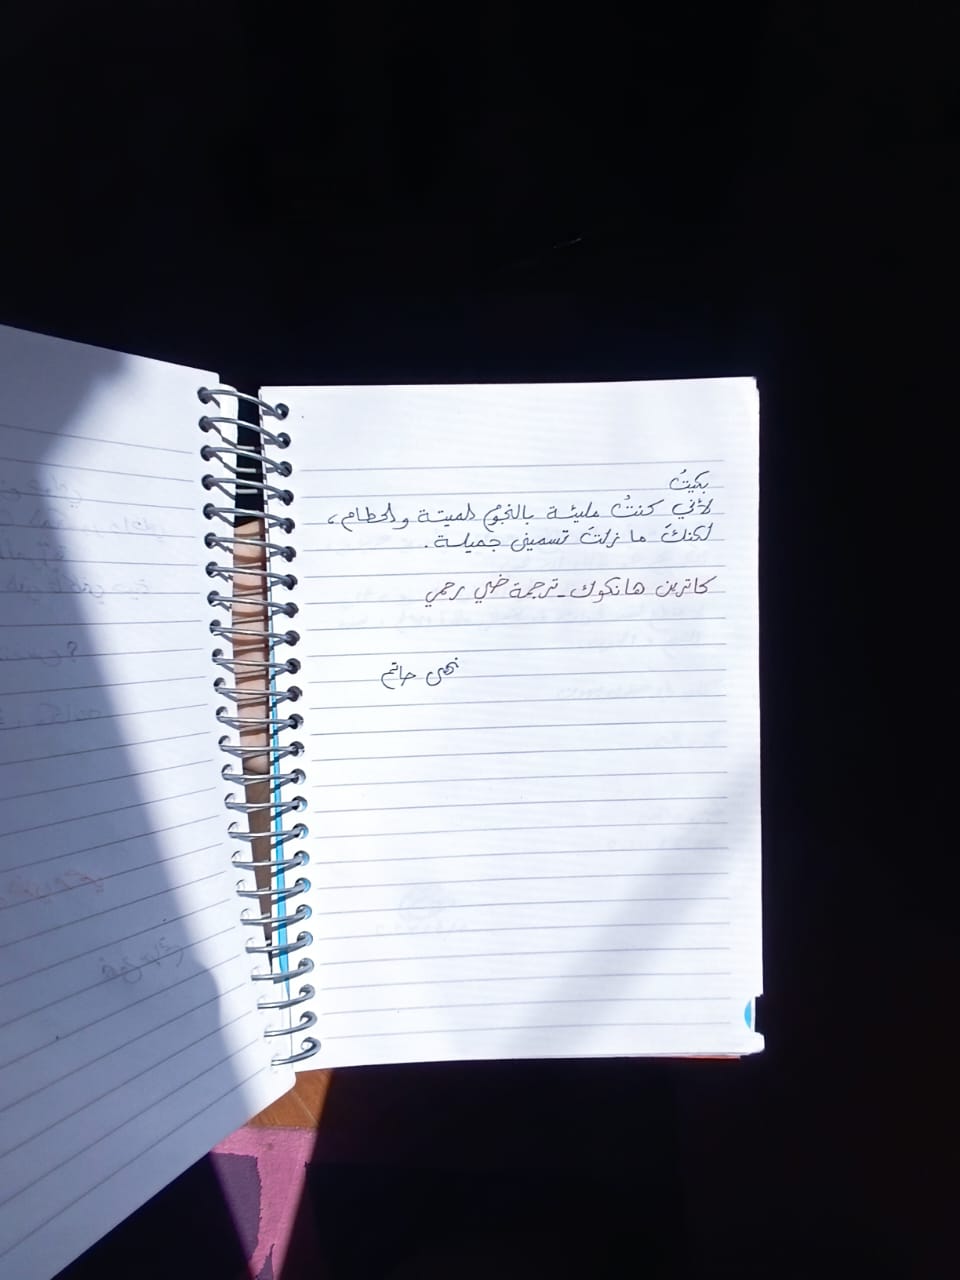 بكيتُ
لأني كنتُ مليئة بالنجوم الميتة والحطام،
لكنكَ ما زلتَ تسميني جميلة.
كاترين هانكوك - ترجمة ضي رحمي
نهى حاتم